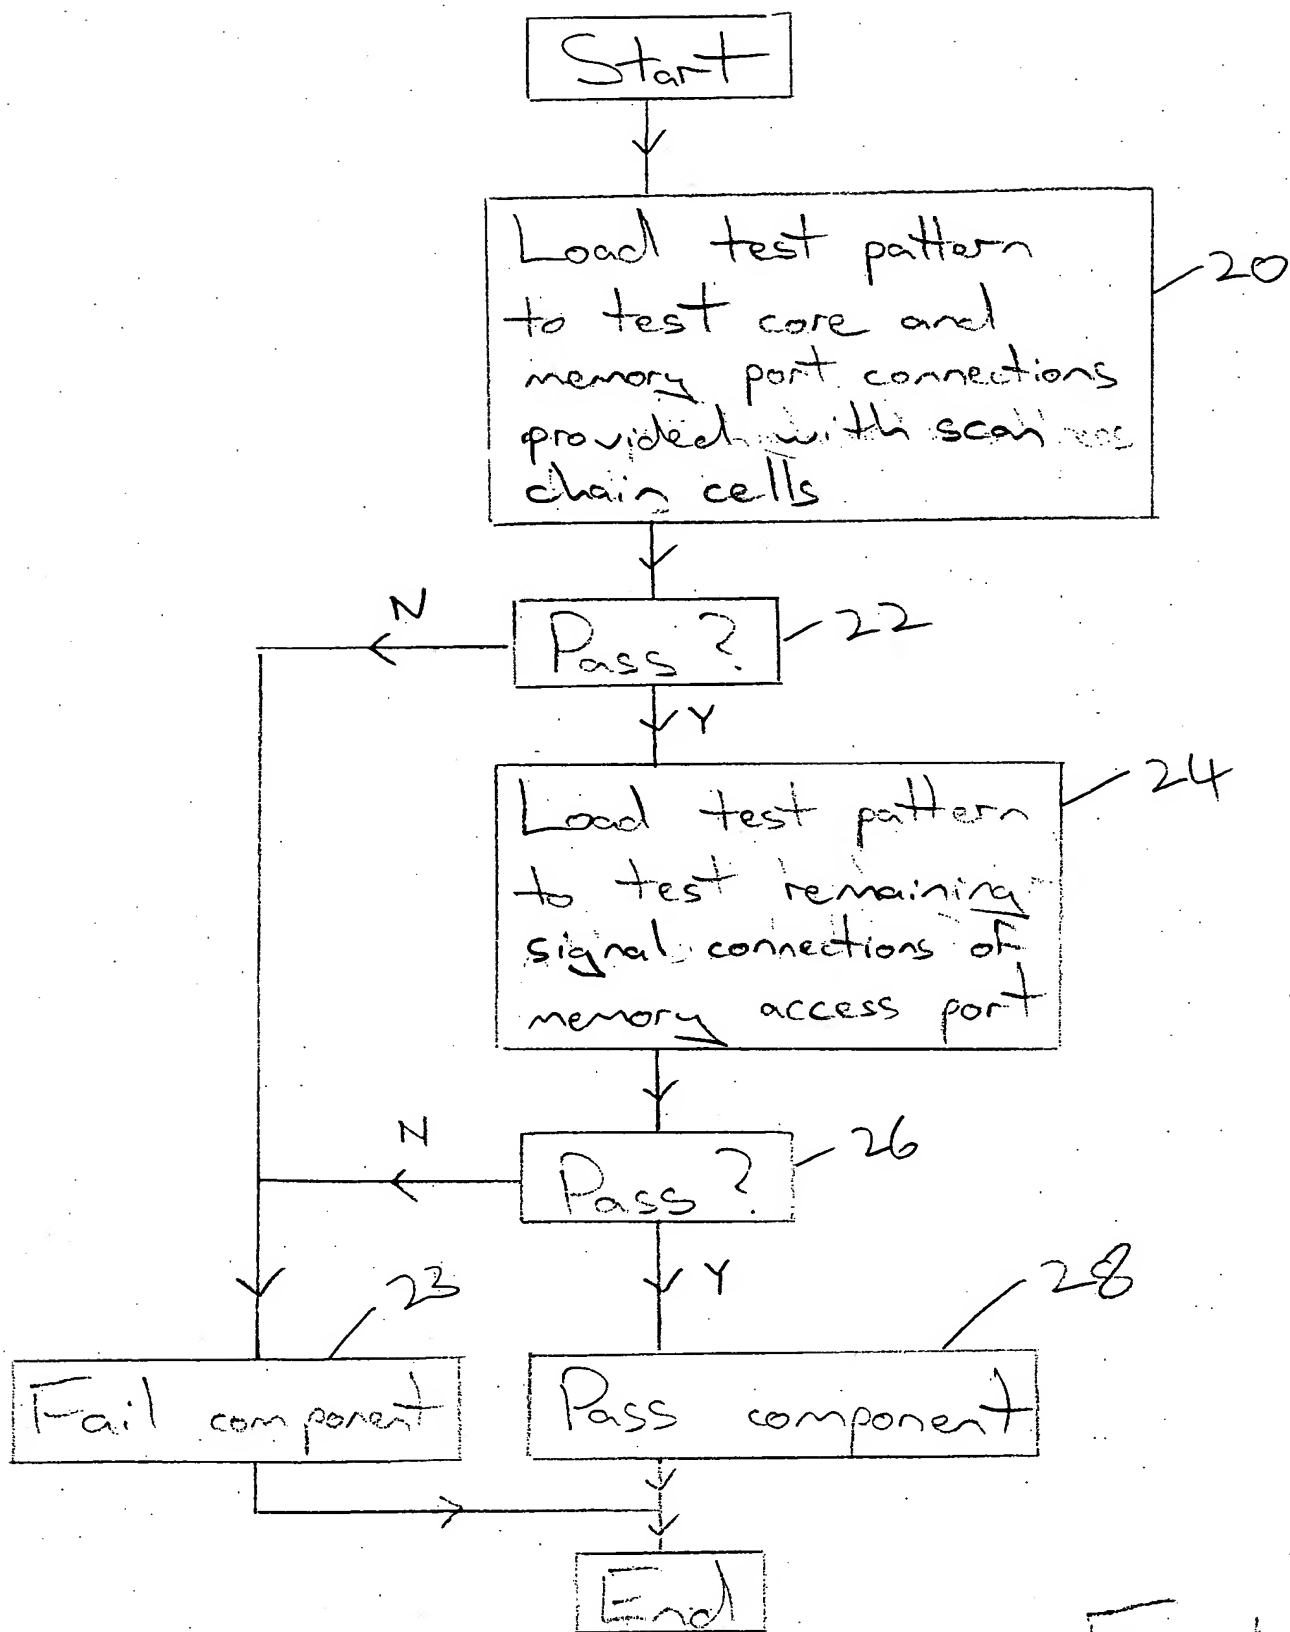 Start
Load test pattern
to test core and
memory port connections
provided with scan
chain cells
20
Pass ?
22
N
Y
Load test pattern
to test remaining
signal connections of
memory access port
24
Pass ?
26
N
Y
23
28
Fail component
Pass component
End